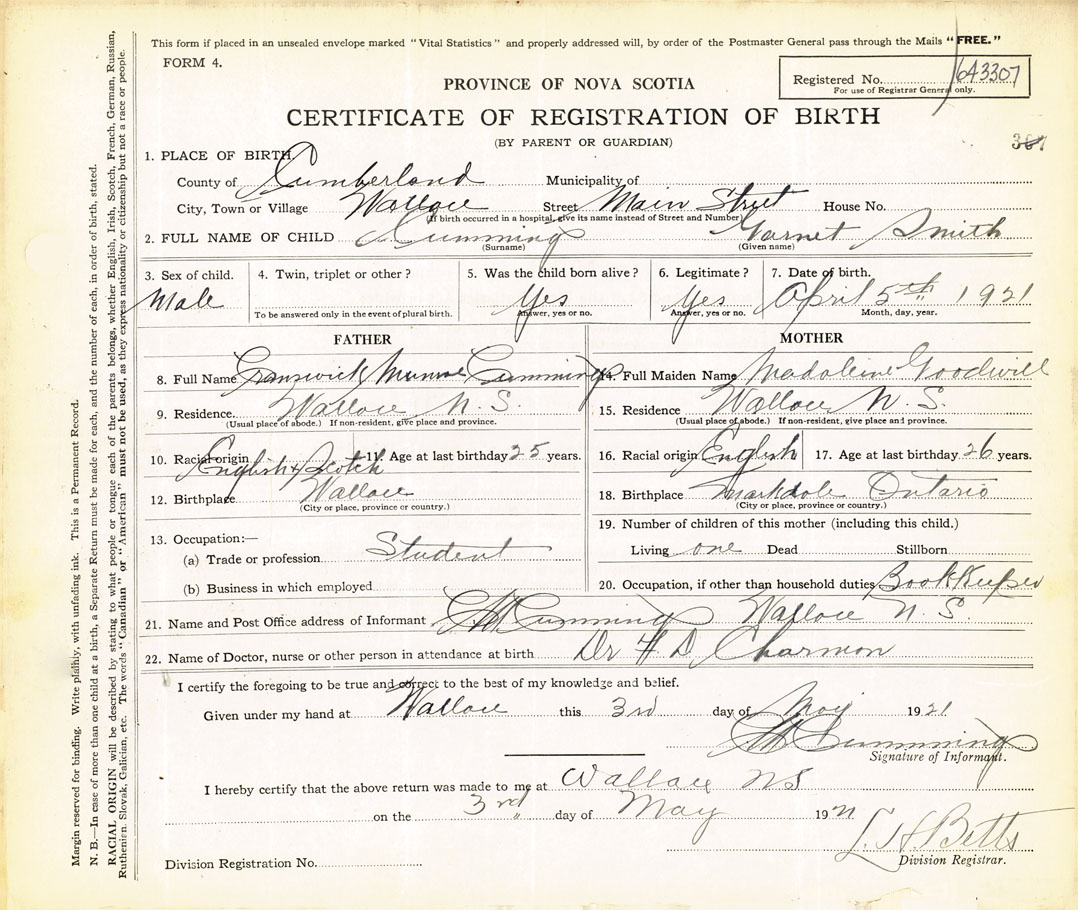 This form if placed in an unsealed envelope marked "Vital Statistics" and properly addressed will, by order of the Postmaster General pass through the Mails "FREE."
FORM 4.
Registered No. 643307
For use of Registrar General only.
PROVINCE OF NOVA SCOTIA
CERTIFICATE OF REGISTRATION OF BIRTH
(BY PARENT OR GUARDIAN)
1. PLACE OF BIRTH
County of Cumberland Municipality of
City, Town or Village Wallace Street Main Street House No.
(If birth occurred in a hospital, give its name instead of Street and Number)
2. FULL NAME OF CHILD Cumming Garnet Smith
(Surname) (Given name)
3. Sex of child. 4. Twin, triplet or other? 5. Was the child born alive? 6. Legitimate? 7. Date of birth.
Male Yes Yes April 5th 1921
To be answered only in the event of plural birth. Answer, yes or no. Answer, yes or no. Month, day, year.
FATHER MOTHER
8. Full Name Munroe Cumming 14. Full Maiden Name Madaleine Goodwill
9. Residence. Wallace N. S. 15. Residence Wallace N. S.
(Usual place of abode.) If non-resident, give place and province. (Usual place of abode.) If non-resident, give place and province.
10. Racial origin English & Scotch 11. Age at last birthday 25 years. 16. Racial origin English 17. Age at last birthday 26 years.
12. Birthplace Wallace 18. Birthplace Markdale Ontario
(City or place, province or country.) (City or place, province or country.)
13. Occupation:— 19. Number of children of this mother (including this child.)
(a) Trade or profession. Student Living one Dead Stillborn
(b) Business in which employed 20. Occupation, if other than household duties BookKeeper
21. Name and Post Office address of Informant Cumming Wallace N. S.
22. Name of Doctor, nurse or other person in attendance at birth Dr H D Charmon
I certify the foregoing to be true and correct to the best of my knowledge and belief.
Given under my hand at Wallace this 3rd day of May 1921
Cumming
Signature of Informant.
I hereby certify that the above return was made to me at Wallace NS
on the 3rd day of May 1921
L. H. Betts
Division Registrar.
Division Registration No.
Margin reserved for binding. Write plainly, with unfading ink. This is a Permanent Record.
N. B.—In case of more than one child at a birth, a Separate Return must be made for each, and the number of each, in order of birth, stated.
RACIAL ORIGIN will be described by stating to what people or tongue each of the parents belongs, whether English, Irish, Scotch, French, German, Russian,
Ruthenian, Slovak, Galician, etc. The words "Canadian" or "American" must not be used, as they express nationality or citizenship but not a race or people.